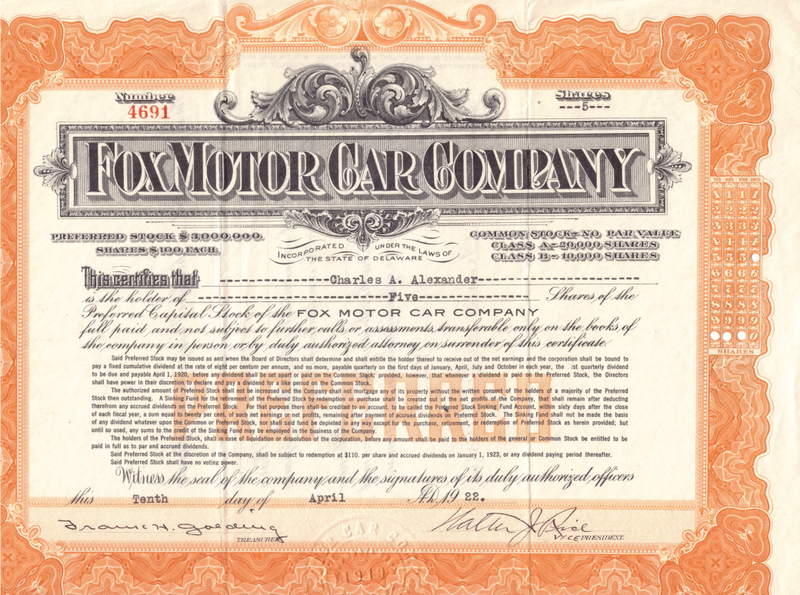 Number
4691
Shares
---5---
FOX MOTOR CAR COMPANY
PREFERRED STOCK $3,000,000.
SHARES $100. EACH.
INCORPORATED UNDER THE LAWS OF
THE STATE OF DELAWARE
COMMON STOCK-NO PAR VALUE
CLASS A-20,000 SHARES
CLASS B-10,000 SHARES
This certifies that Charles A. Alexander
is the holder of Five Shares of the
Preferred Capital Stock of the FOX MOTOR CAR COMPANY
full paid and not subject to further calls or assessments, transferable only on the books of
the company in person or by duly authorized attorney on surrender of this certificate.
Said Preferred Stock may be issued as and when the Board of Directors shall determine and shall entitle the holder thereof to receive out of the net earnings and the corporation shall be bound to
pay a fixed cumulative dividend at the rate of eight per centum per annum, and no more, payable quarterly on the first days of January, April, July and October in each year, the 1st quarterly dividend
to be due and payable April 1, 1920, before any dividend shall be set apart or paid on the Common Stock; provided, however, that whenever a dividend is paid on the Preferred Stock, the Directors
shall have power in their discretion to declare and pay a dividend for a like period on the Common Stock.
The authorized amount of Preferred Stock shall not be increased and the Company shall not mortgage any of its property without the written consent of the holders of a majority of the Preferred
Stock then outstanding. A Sinking Fund for the retirement of the Preferred Stock by redemption or purchase shall be created out of net profits of the Company, that shall remain after deducting
therefrom any accrued dividends on the Preferred Stock. For that purpose there shall be credited to an account, to be called the Preferred Stock Sinking Fund Account, within sixty days after the close
of each fiscal year, a sum equal to twenty per cent. of such net earnings or net profits, remaining after payment of accrued dividends on Preferred Stock. The Sinking Fund shall not be made the basis
of any dividend whatever upon the Common or Preferred Stock, or shall said fund be depleted in any way except for the purchase, retirement, or redemption of Preferred Stock as herein provided; but
until so used, any sums to the credit of the Sinking Fund may be employed in the business of the Company.
The holders of the Preferred Stock, shall in case of liquidation or dissolution of the corporation, before any amount shall be paid to the holders of the general or Common Stock be entitled to be
paid in full as to par and accrued dividends.
Said Preferred Stock at the discretion of the Company, shall be subject to redemption at $110. per share and accrued dividends on January 1, 1923, or any dividend paying period thereafter.
Said Preferred Stock shall have no voting power.
Witness the seal of the company and the signatures of its duly authorized officers
this Tenth day of April A.D. 1922.
Frank H. Golding
TREASURER
Walter J. Rice
VICE PRESIDENT.
SHARES